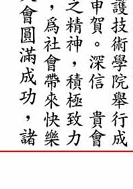 護技術學院舉行成
申賀。深信　貴會
之精神，積極致力
，為社會帶來快樂
會圓滿成功，諸